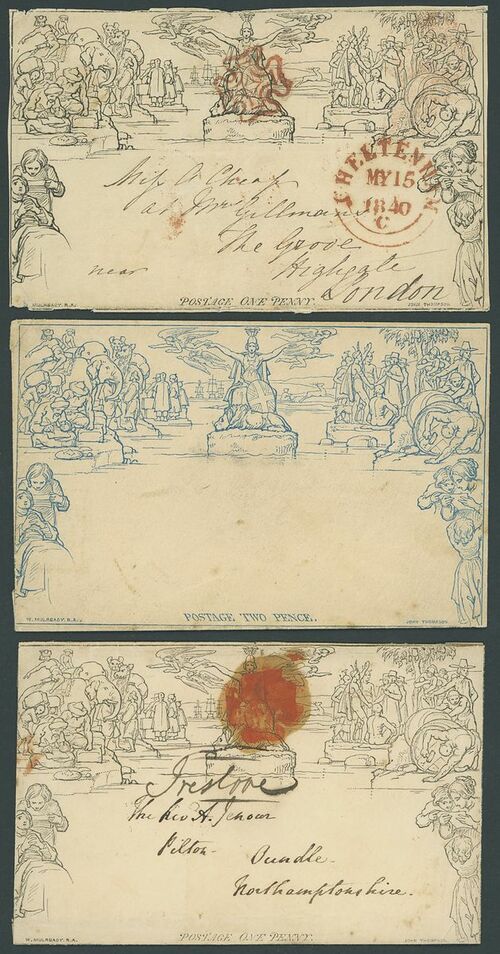 CHELTENHAM
MY 15
1840
C
Miss
at Mrs Gillmans
The Grove
Highgate
near London
W. MULREADY. R.A.
POSTAGE ONE PENNY.
JOHN THOMPSON
W. MULREADY. R.A.
POSTAGE TWO PENCE.
JOHN THOMPSON
The Rev A.
Pilton
Oundle
Northamptonshire.
W. MULREADY. R.A.
POSTAGE ONE PENNY.
JOHN THOMPSON